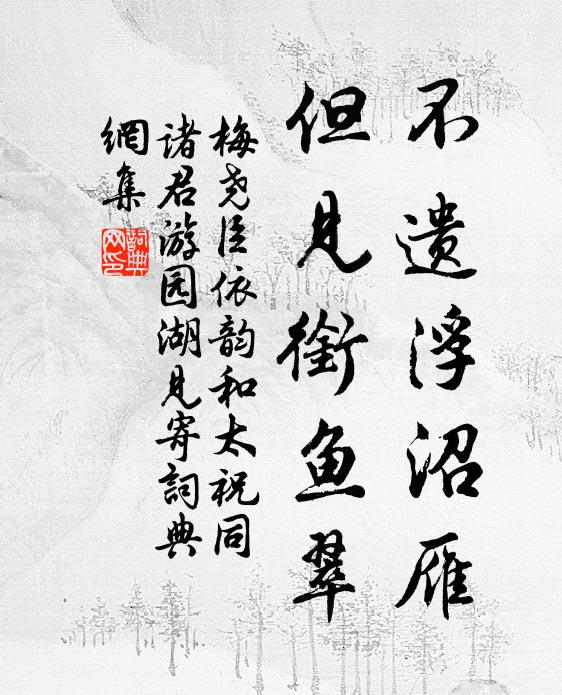 不遗浮沼雁
但见衔鱼翠
梅尧臣依韵和太祝同
诸君游园湖见寄词典
網集
詞典
网印